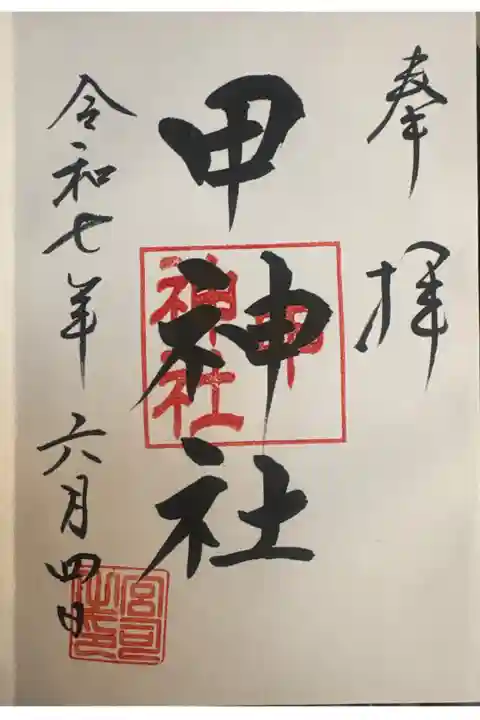 奉拝
甲神社
甲神社
令和七年六月四日
宮司之印